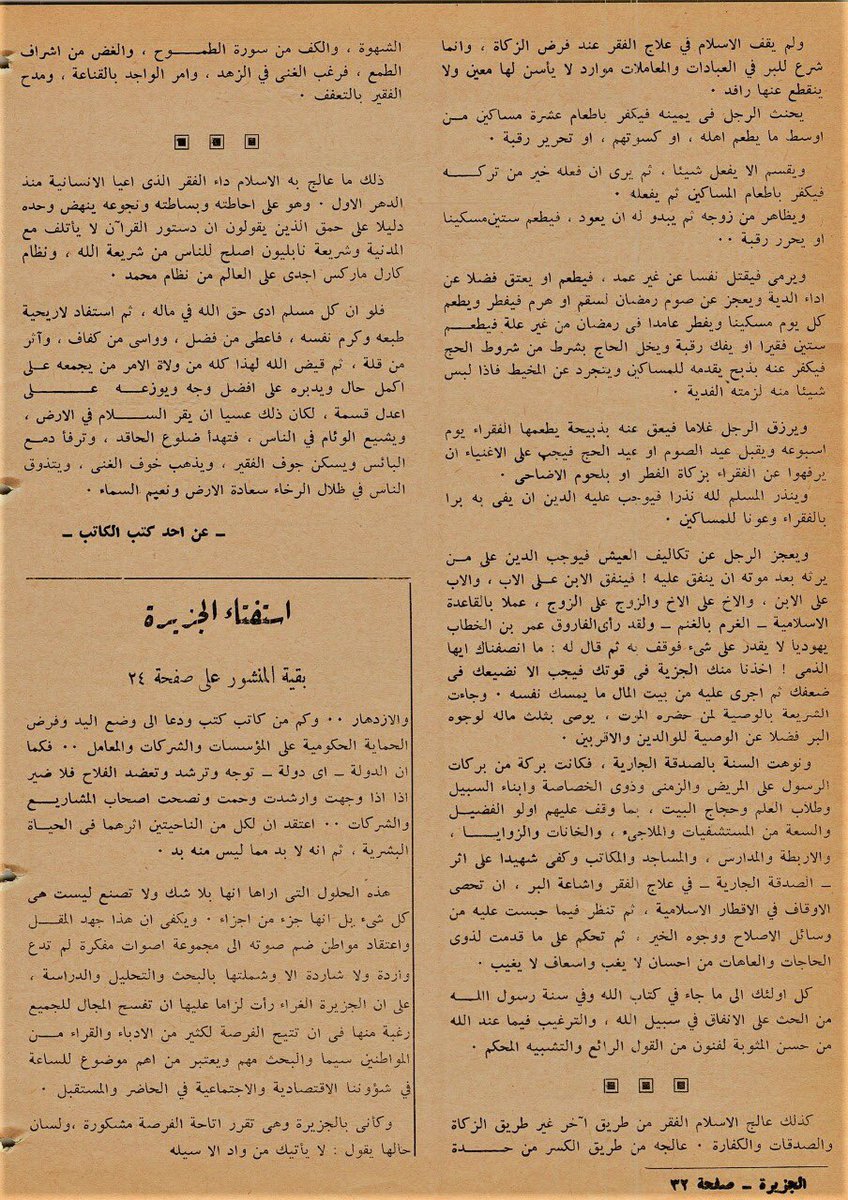 ولم يقف الاسلام في علاج الفقر عند فرض الزكاة ، وانما
شرع للبر في العبادات والمعاملات موارد لا يأسن لها معين ولا
ينقطع عنها رافد ٠
يحنث الرجل فى يمينه فيكفر باطعام عشرة مساكين مــن
اوسط ما يطعم اهله ، او كسوتهم ، او تحرير رقبة ٠
ويقسم الا يفعل شيئا ، ثم يرى ان فعله خير من تركــــه
فيكفر باطعام المساكين ثم يفعله ٠
ويظاهر من زوجه ثم يبدو له ان يعود ، فيطعم ستين مسكينا
او يحرر رقبة ٠٠
ويرمى فيقتل نفسا عن غير عمد ، فيطعم او يعتق فضلا عن
اداء الدية ويعجز عن صوم رمضان لسقم او هرم فيفطر ويطعم
كل يوم مسكينا ويفطر عامدا فى رمضان من غير علة فيطعــم
ستين فقيرا او يفك رقبة ويخل الحاج بشرط من شروط الحج
فيكفر عنه بذبح يقدمه للمساكين ويتجرد عن المخيط فاذا لبس
شيئا منه لزمته الفدية ٠
ويرزق الرجل غلاما فيعق عنه بذبيحة يطعمها الفقراء يوم
اسبوعه ويقبل عيد الصوم او عيد الحج فيجب على الاغنياء ان
يرفهوا عن الفقراء بزكاة الفطر او بلحوم الاضاحى ٠
وينذر المسلم لله نذرا فيوجب عليه الدين ان يفى به برا
بالفقراء وعونا للمساكين ٠
ويعجز الرجل عن تكاليف العيش فيوجب الدين على مــن
يرثه بعد موته ان ينفق عليه ! فينفق الابن على الاب ، والاب
على الابن ، والاخ على الاخ والزوج على الزوج ، عملا بالقاعدة
الاسلامية ــ الغرم بالغنم ــ ولقد رأى الفاروق عمر بن الخطاب
يهوديا لا يقدر على شىء فوقف به ثم قال له : ما انصفناك ايها
الذمى ! اخذنا منك الجزية فى قوتك فيجب الا نضيعك فى
ضعفك ثم اجرى عليه من بيت المال ما يمسك نفسه ٠ وجاءت
الشريعة بالوصية لمن حضره الموت ، يوصى بثلث ماله لوجوه
البر فضلا عن الوصية للوالدين والاقربين ٠
ونوهت السنة بالصدقة الجارية ، فكانت بركة من بركات
الرسول على المريض والزمنى وذوى الخصاصة وابناء السبيل
وطلاب العلم وحجاج البيت ، بما وقف عليهم اولو الفضيل
والسعة من المستشفيات والملاجىء ، والخانات والزوايــا ،
والاربطة والمدارس ، والمساجد والمكاتب وكفى شهيدا على اثر
ــ الصدقة الجارية ــ في علاج الفقر واشاعة البر ، ان تحصى
الاوقاف في الاقطار الاسلامية ، ثم تنظر فيما حبست عليه من
وسائل الاصلاح ووجوه الخير ، ثم تحكم على ما قدمت لذوى
الحاجات والعاهات من احسان لا يغب واسعاف لا يغيب ٠
كل اولئك الى ما جاء في كتاب الله وفي سنة رسول اللــه
من الحث على الانفاق في سبيل الله ، والترغيب فيما عند الله
من حسن المثوبة لفنون من القول الرائع والتشبيه المحكم ٠
كذلك عالج الاسلام الفقر من طريق آخر غير طريق الزكاة
والصدقات والكفارة ٠ عالجه من طريق الكسر من حــــدة
الجزيرة ــ صفحة ٣٢
الشهوة ، والكف من سورة الطمــــوح ، والغض من اشراف
الطمع ، فرغب الغنى في الزهد ، وامر الواجد بالقناعة ، ومدح
الفقير بالتعفف ٠
ذلك ما عالج به الاسلام داء الفقر الذى اعيا الانسانية منذ
الدهر الاول ٠ وهو على احاطته وبساطته ونجوعه ينهض وحده
دليلا على حمق الذين يقولون ان دستور القرآن لا يأتلف مع
المدنية وشريعة نابليون اصلح للناس من شريعة الله ، ونظام
كارل ماركس اجدى على العالم من نظام محمد ٠
فلو ان كل مسلم ادى حق الله في ماله ، ثم استفاد لاريحية
طبعه وكرم نفسه ، فاعطى من فضل ، وواسى من كفاف ، وآثر
من قلة ، ثم قيض الله لهذا كله من ولاة الامر من يجمعه على
اكمل حال ويدبره على افضل وجه ويوزعــه عـــــلى
اعدل قسمة ، لكان ذلك عسيا ان يقر الســـلام في الارض ،
ويشيع الوئام في الناس ، فتهدأ ضلوع الحاقد ، وترفأ دمــع
البائس ويسكن جوف الفقير ، ويذهب خوف الغنى ، ويتذوق
الناس في ظلال الرخاء سعادة الارض ونعيم السماء ٠
ــ عن احد كتب الكاتب ــ
استفتاء الجزيرة
بقية المنشور على صفحة ٢٤
والازدهار ٠٠ وكم من كاتب كتب ودعا الى وضع اليد وفرض
الحماية الحكومية على المؤسسات والشركات والمعامل ٠٠ فكما
ان الدولة ــ اى دولة ــ توجه وترشد وتعضد الفلاح فلا ضير
اذا اذا وجهت وارشدت وحمت ونصحت اصحاب المشاريــع
والشركات ٠٠ اعتقد ان لكل من الناحيتين اثرهما فى الحيـاة
البشرية ، ثم انه لا بد مما ليس منه بد ٠
هذه الحلول التى اراها انها بلا شك ولا تصنع ليست هى
كل شىء بل انها جزء من اجزاء ٠ ويكفى ان هذا جهد المقــل
واعتقاد مواطن ضم صوته الى مجموعة اصوات مفكرة لم تدع
واردة ولا شاردة الا وشملتها بالبحث والتحليل والدراسة ،
على ان الجزيرة الغراء رأت لزاما عليها ان تفسح المجال للجميع
رغبة منها فى ان تتيح الفرصة لكثير من الادباء والقراء مــن
المواطنين سيما والبحث مهم ويعتبر من اهم موضوع للساعة
في شؤوننا الاقتصادية والاجتماعية في الحاضر والمستقبل ٠
وكانى بالجزيرة وهى تقرر اتاحة الفرصة مشكورة ،ولسان
حالها يقول : لا يأتيك من واد الا سيله